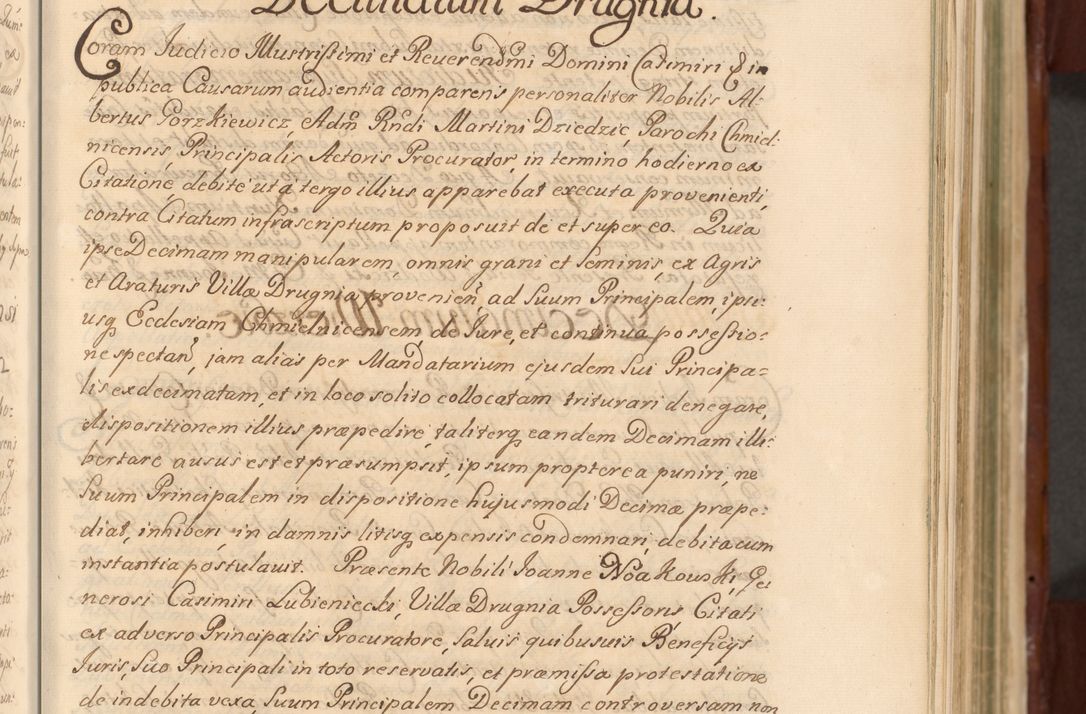 Decimarum Drugnia.
Coram Iudicio Illustrissimi et Reverendmi Domini Casimiri & in
publica Causarum audientia comparens personaliter Nobilis Al:
bertus Gorzkiewicz, Adm Rndi Martini Dziedzic Parochi Chmiel:
nicensis Principalis Actoris Procurator, in termino hodierno ex
Citatione debite ut a tergo illius apparebat executa provenienti,
contra Citatum infrascriptum proposuit de et super eo. Quia
ipse Decimam manipularem, omnis grani et seminis, ex Agris
et Araturis Villæ Drugnia provenien ad Suum Principalem, ipsi:
usq Ecclesiam Chmielnicensem, de Iure, et continua possessio:
ne spectan, jam alias per Mandatarium ejusdem Sui Principa=
lis exdecimatam, et in loco solito collocatam triturari denegare,
dispositionem illius præpedire, taliterq eandem Decimam illi:
bertare ausus est et præsumpsit, ipsum propterea puniri, ne
Suum Principalem in dispositione hujusmodi Decimæ præpe:
diat, inhiberi, in damnis litisq expensis condemnari, debita cum
instantia postulavit. Præsente Nobili Ioanne Noakowski, Ge
nerosi Casimiri Lubieniecki, Villæ Drugnia Possessoris Citati
ex adverso Principalis Procuratore, Salvis quibusvis Beneficijs
Iuris, Suo Principali in toto reservatis, et præmissa protestatione
de indebita vexa, Suum Principalem Decimam controversam non